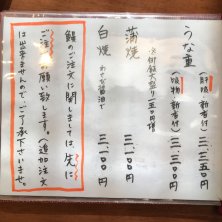 うな重
（肝吸 新香付） 三、三〇〇円
（吸物 新香付） 三、二五〇円
蒲焼 三、一〇〇円
白焼 わさび醤油で 三、一〇〇円
鰻のご注文に関しましては、先に
ご注文お願い致します。（追加注文
は出来ませんので、ご了承下さいませ。）